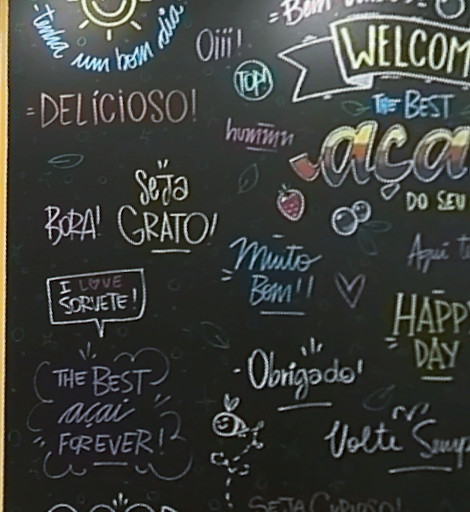 tenha um bom dia
Oiii!
Bem
WELCOM
TOP!
THE BEST
=DELICIOSO!
hummm
aça
DO SEU
Seja
GRATO!
BORA!
Muito
Bem!!
Aqui te
I LOVE
SORVETE!
HAPP
DAY
THE BEST
açaí
FOREVER!
Obrigado!
Volte Semp
SEJA CURIOSO!